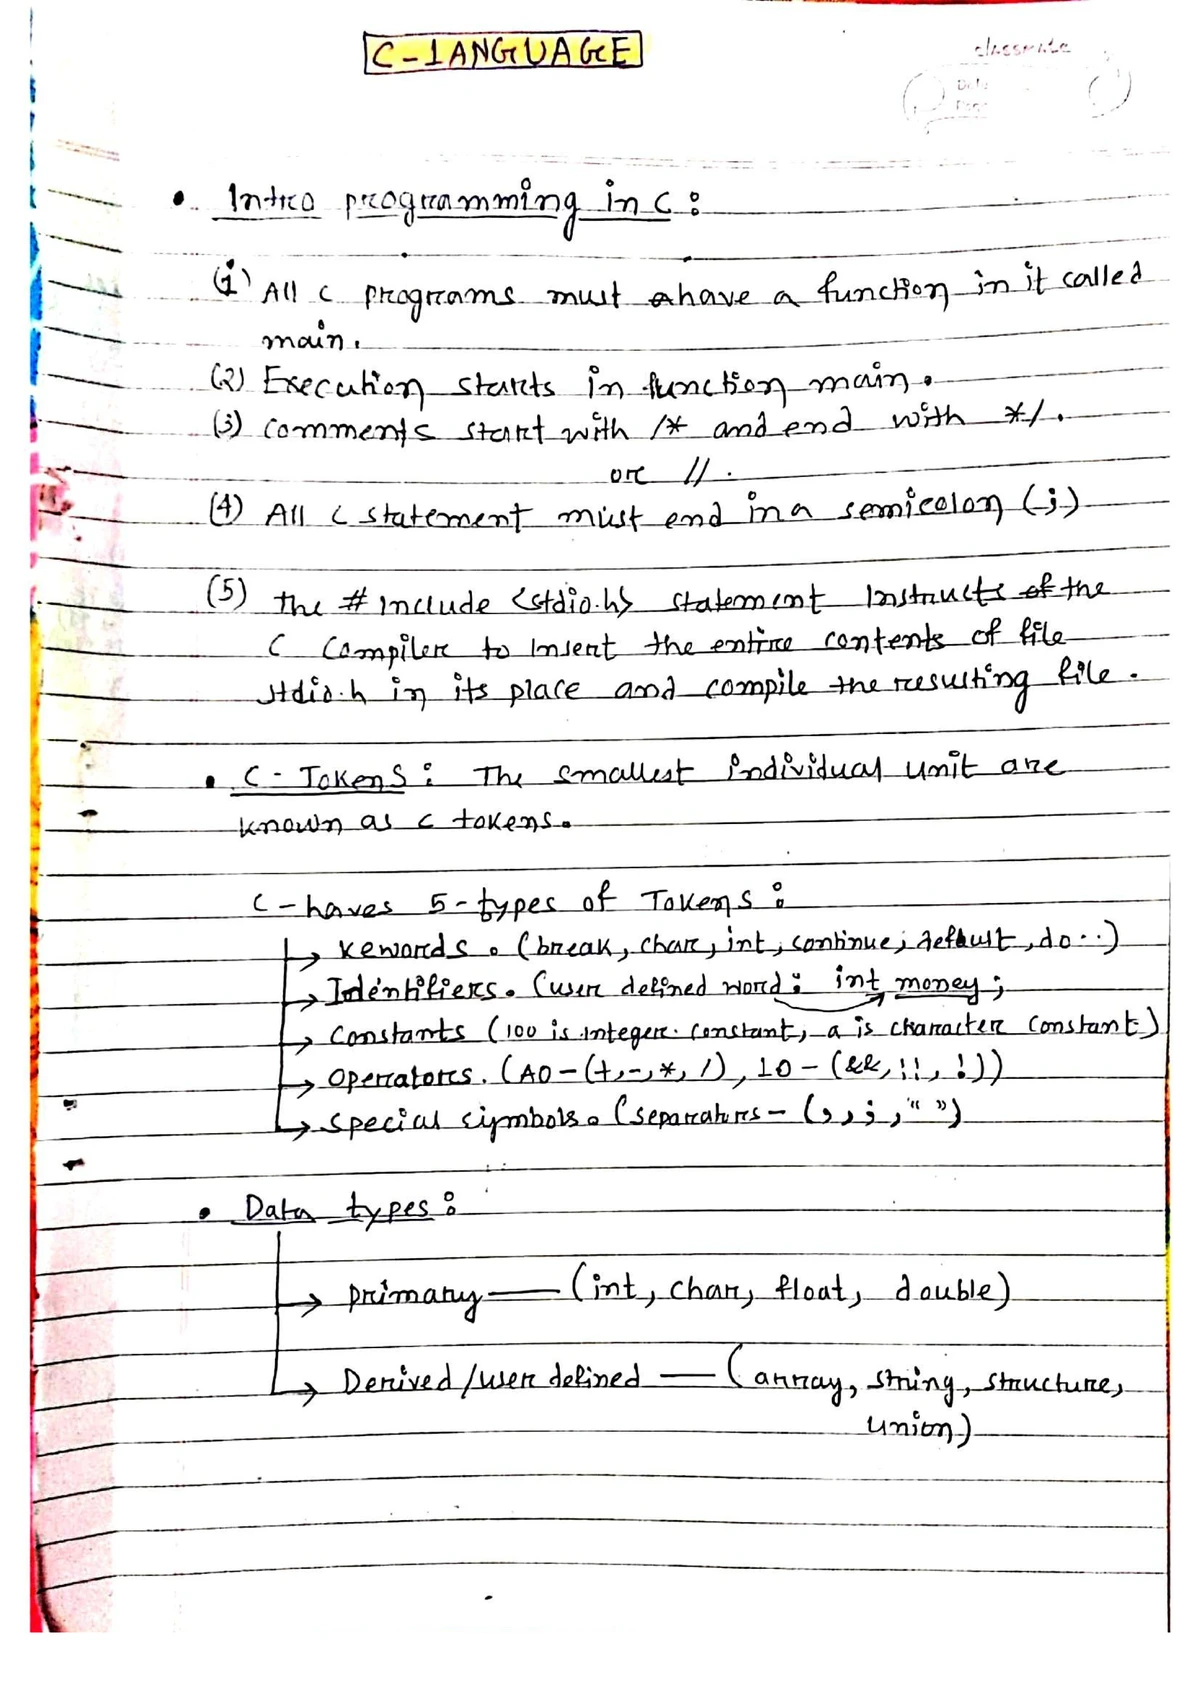 C-LANGUAGE
classmate
Date
Page
• Intro programming in C:
(1) All C programs must have a function in it called
main.
(2) Execution starts in function main.
(3) comments start with /* and end with */.
or //.
(4) All C statement must end in a semicolon (;)
(5) the #include <stdio.h> statement Instructs of the
C Compiler to Insert the entire contents of file
stdio.h in its place and compile the resulting file.
• C-Tokens: The smallest individual unit are
known as c tokens.
C-haves 5-types of Tokens:
→ kewords. (break, char, int, continue, default, do..)
→ Identifiers. (user defined word: int money;
→ Constants (100 is integer constant, a is character constant)
→ Operators. (AO-(+,-,*,/), LO-(&&,!!,!))
→ Special symbols. (separaturs-(,,;," ")
• Data types:
→ primary — (int, char, float, double)
→ Derived/user defined — (array, string, structure,
union)